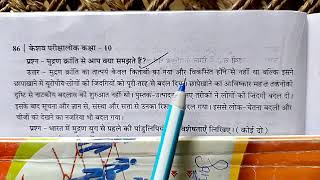 86 | केशव परीक्षालोक कक्षा - 10
प्रश्न - मुद्रण क्रांति से आप क्या समझते हैं?
उत्तर - मुद्रण क्रांति का तात्पर्य केवल किताबों का नया और विकसित होने से नहीं था बल्कि इसने
छापेखाने से यूरोपीय लोगों की जिंदगी को पूरी तरह से बदल दिया। छापेखाने का आविष्कार महज तकनीकी
दृष्टि से नाटकीय बदलाव की शुरुआत नहीं थी। पुस्तक-उत्पादन के नए तरीकों ने लोगों की जिंदगी बदल दी।
इसके बाद सूचना और ज्ञान से, संस्था और सत्ता से उनका रिश्ता बदल गया। इससे लोक-चेतना बदली और
चीजों को देखने का नजरिया भी बदल गया।
प्रश्न - भारत में मुद्रण युग से पहले की पांडुलिपियों की विशेषताएँ लिखिए। (कोई दो)